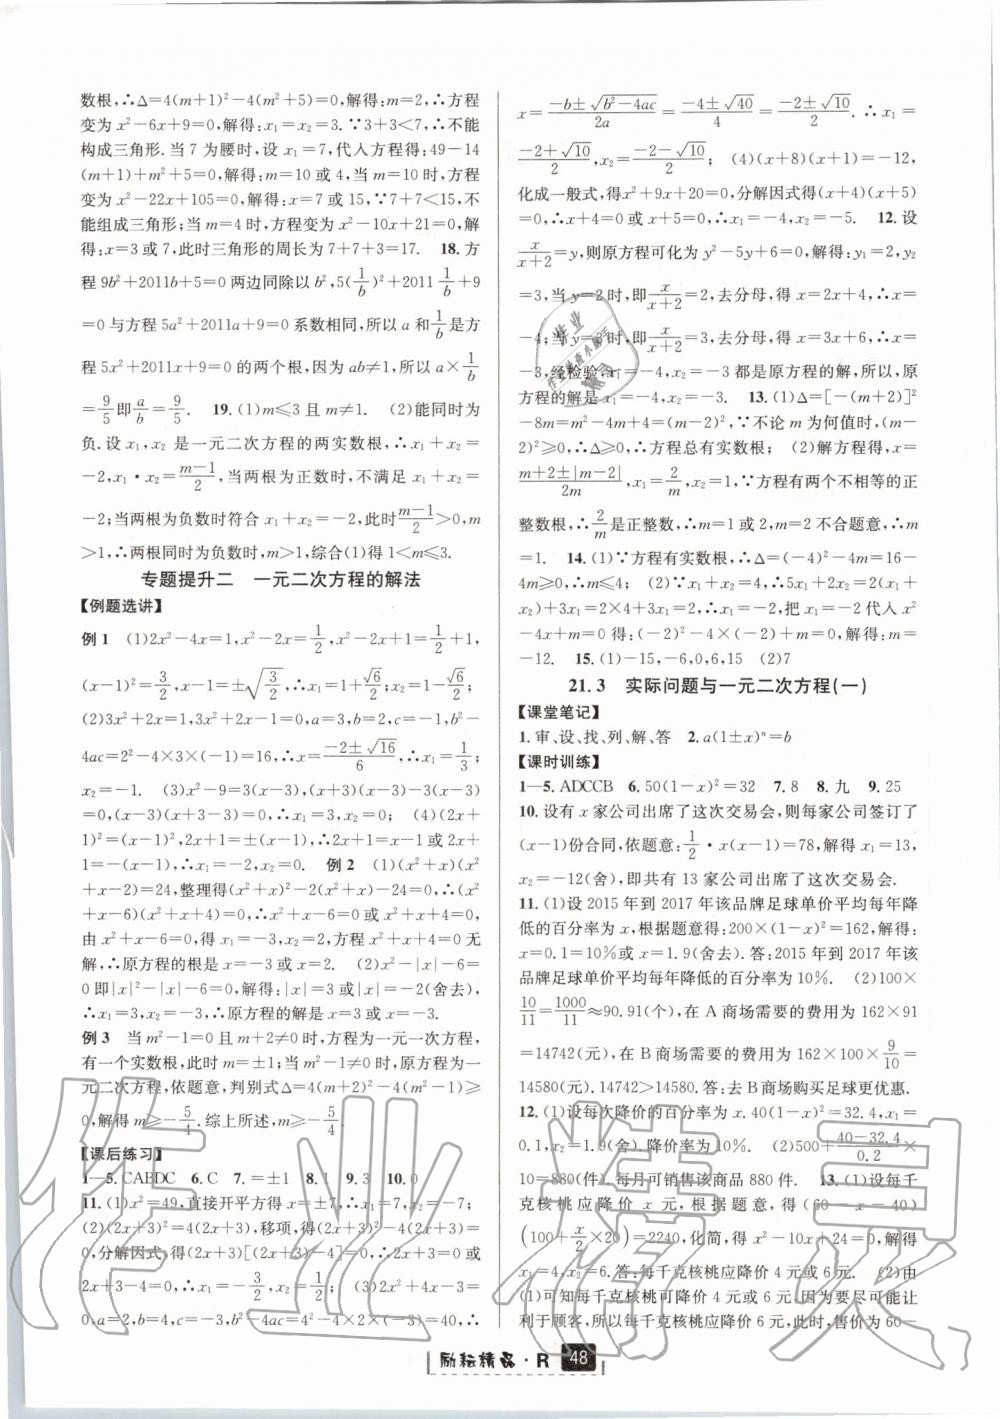 数根,∴Δ=4(m+1)²-4(m²+5)=0,解得:m=2,∴方程
变为 x²-6x+9=0,解得:x₁=x₂=3.∵3+3<7,∴不能
构成三角形.当 7 为腰时,设 x₁=7,代入方程得:49-14
(m+1)+m²+5=0,解得:m=10 或 4,当 m=10 时,方程
变为 x²-22x+105=0,解得:x=7 或 15,∵7+7<15,不
能组成三角形;当 m=4 时,方程变为 x²-10x+21=0,解
得:x=3 或 7,此时三角形的周长为 7+7+3=17. 18.方
程 9b²+2011b+5=0 两边同除以 b²,5(1/b)²+2011 1/b+9
=0 与方程 5a²+2011a+9=0 系数相同,所以 a 和 1/b 是方
程 5x²+2011x+9=0 的两个根,因为 ab≠1,所以 a×1/b
=9/5 即 a/b=9/5. 19.(1)m≤3 且 m≠1. (2)能同时为
负.设 x₁,x₂ 是一元二次方程的两实数根,∴x₁+x₂=
-2,x₁·x₂=(m-1)/2,当两根为正数时,不满足 x₁+x₂=
-2;当两根为负数时符合 x₁+x₂=-2,此时(m-1)/2>0,m
>1,∴两根同时为负数时,m>1,综合(1)得 1<m≤3.
专题提升二 一元二次方程的解法
【例题选讲】
例 1 (1)2x²-4x=1,x²-2x=1/2,x²-2x+1=1/2+1,
(x-1)²=3/2,x-1=±√(3/2),x₁=1+√6/2,x₂=1-√6/2;
(2)3x²+2x=1,3x²+2x-1=0,a=3,b=2,c=-1,b²-
4ac=2²-4×3×(-1)=16,∴x=(-2±√16)/6,∴x₁=1/3,
x₂=-1. (3)x²-9=3(x-3),(x+3)(x-3)-3(x-3)
=0,(x-3)(x+3-3)=0,∴x₁=3,x₂=0; (4)(2x+
1)²=(x-1)²,2x+1=±(x-1),∴2x+1=x-1 或 2x+
1=-(x-1),∴x₁=-2,x₂=0. 例 2 (1)(x²+x)(x²
+x-2)=24,整理得(x²+x)²-2(x²+x)-24=0,∴(x²
+x-6)(x²+x+4)=0,∴x²+x-6=0 或 x²+x+4=0,
由 x²+x-6=0,得 x₁=-3,x₂=2.方程 x²+x+4=0 无
解,∴原方程的根是 x=-3 或 x=2. (2)x²-|x|-6=
0 即|x|²-|x|-6=0,解得:|x|=3 或|x|=-2(舍去),
∴x₁=3,x₂=-3,∴原方程的解是 x=3 或 x=-3.
例 3 当 m²-1=0 且 m+2≠0 时,方程为一元一次方程,
有一个实数根,此时 m=±1;当 m²-1≠0 时,原方程为一
元二次方程,依题意,判别式Δ=4(m+2)²-4(m²-1)≥
0,解得 m≥-5/4.综上所述,m≥-5/4.
【课后练习】
1—5.CABDC 6.C 7.=±1 8.1 9.3 10.0
11.(1)x²=49,直接开平方得 x=±7,∴x₁=7,x₂=-7;
(2)(2x+3)²=4(2x+3),移项,得(2x+3)²-4(2x+3)=
0,分解因式,得(2x+3)[(2x+3)-4]=0,∴2x+3=0 或
2x+3-4=0,∴x₁=-3/2,x₂=1/2; (3)2x²+4x-3=
0,a=2,b=4,c=-3,b²-4ac=4²-4×2×(-3)=40,∴
x=(-b±√(b²-4ac))/2a=(-4±√40)/4=(-2±√10)/2. ∴x₁=
(-2+√10)/2,x₂=(-2-√10)/2; (4)(x+8)(x+1)=-12,
化成一般式,得 x²+9x+20=0,分解因式得(x+4)(x+5)
=0,∴x+4=0 或 x+5=0,∴x₁=-4,x₂=-5. 12.设
x/(x+2)=y,则原方程可化为 y²-5y+6=0,解得:y₁=2,y₂
=3,当 y=2 时,即 x/(x+2)=2,去分母,得 x=2x+4,∴x=
-4;当 y=3 时,即 x/(x+2)=3,去分母,得 x=3x+6,∴x=
-3,经检验,x₁=-4,x₂=-3 都是原方程的解,所以,原
方程的解是 x₁=-4,x₂=-3. 13.(1)Δ=[-(m+2)]²
-8m=m²-4m+4=(m-2)²,∵不论 m 为何值时,(m-
2)²≥0,∴Δ≥0,∴方程总有实数根; (2)解方程得,x=
(m+2±|m-2|)/2m,x₁=2/m,x₂=1,∵方程有两个不相等的正
整数根,∴2/m 是正整数,∴m=1 或 2,m=2 不合题意,∴m
=1. 14.(1)∵方程有实数根,∴Δ=(-4)²-4m=16-
4m≥0,∴m≤4; (2)∵x₁+x₂=4,∴5x₁+2x₂=2(x₁+
x₂)+3x₁=2×4+3x₁=2,∴x₁=-2,把 x₁=-2 代入 x²
-4x+m=0 得:(-2)²-4×(-2)+m=0,解得:m=
-12. 15.(1)-15,-6,0,6,15 (2)7
21.3 实际问题与一元二次方程(一)
【课堂笔记】
1.审、设、找、列、解、答 2.a(1±x)ⁿ=b
【课时训练】
1—5.ADCCB 6.50(1-x)²=32 7.8 8.九 9.25
10.设有 x 家公司出席了这次交易会,则每家公司签订了
(x-1)份合同,依题意:1/2·x(x-1)=78,解得 x₁=13,
x₂=-12(舍),即共有 13 家公司出席了这次交易会.
11.(1)设 2015 年到 2017 年该品牌足球单价平均每年降
低的百分率为 x,根据题意得:200×(1-x)²=162,解得:
x=0.1=10%或 x=1.9(舍去).答:2015 年到 2017 年该
品牌足球单价平均每年降低的百分率为 10%. (2)100×
10/11=1000/11≈90.91(个),在 A 商场需要的费用为 162×91
=14742(元),在 B 商场需要的费用为 162×100×9/10=
14580(元).14742>14580.答:去 B 商场购买足球更优惠.
12.(1)设每次降价的百分率为 x.40(1-x)²=32.4,x₁=
0.1,x₂=1.9(舍).降价率为 10%. (2)500+(40-32.4)/0.2×
10=880(件).每月可销售该商品 880 件. 13.(1)设每千
克核桃应降价 x 元,根据题意,得(60-x-40)
(100+x/2×20)=2240,化简,得 x²-10x+24=0,解得
x₁=4,x₂=6.答:每千克核桃应降价 4 元或 6 元. (2)由
(1)可知每千克核桃可降价 4 元或 6 元,因为要尽可能让
利于顾客,所以每千克核桃应降价 6 元.此时,售价为 60-
励耘精品·R 48
作业精灵